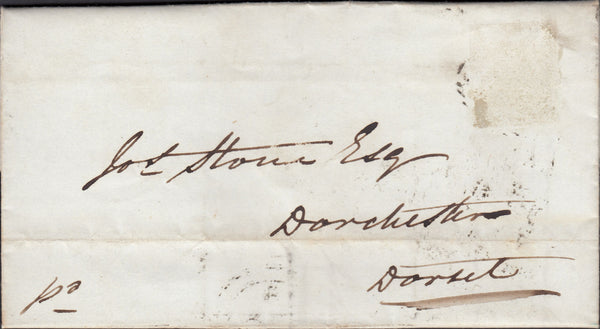 Jos. Stone Esq
Dorchester
Dorset
pd